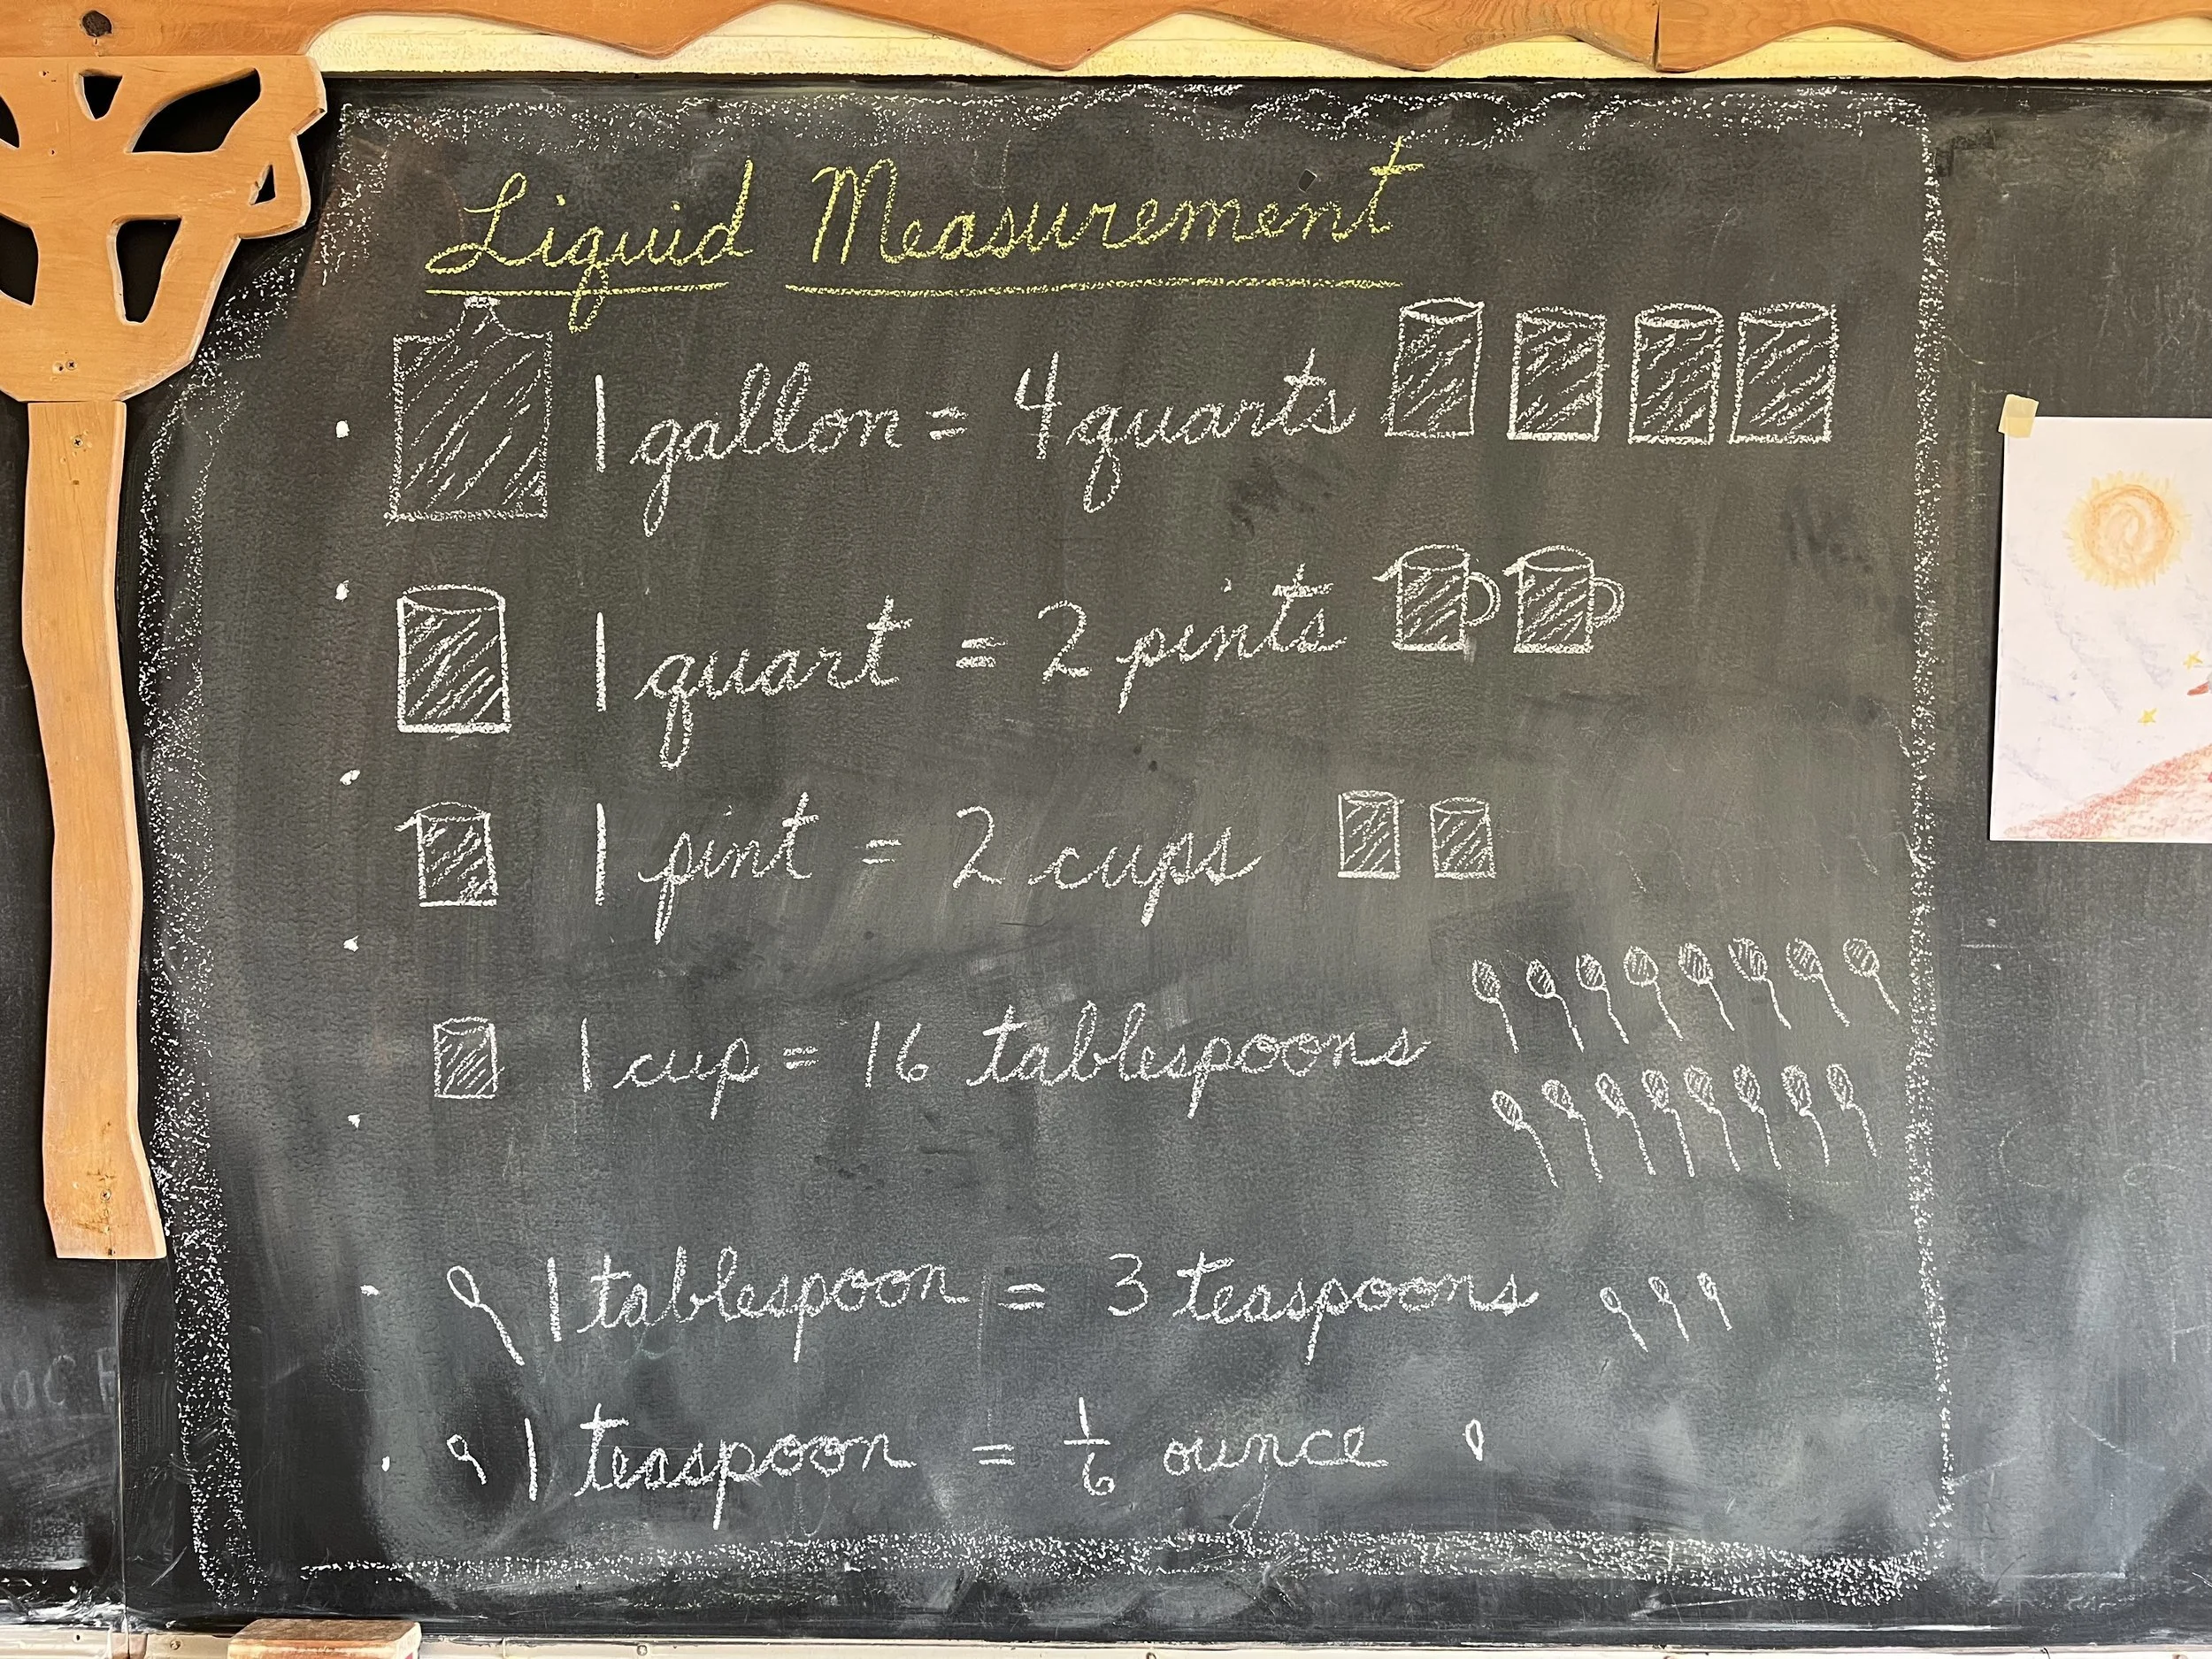 Liquid Measurement
1 gallon = 4 quarts
1 quart = 2 pints
1 pint = 2 cups
1 cup = 16 tablespoons
1 tablespoon = 3 teaspoons
1 teaspoon = 1/6 ounce